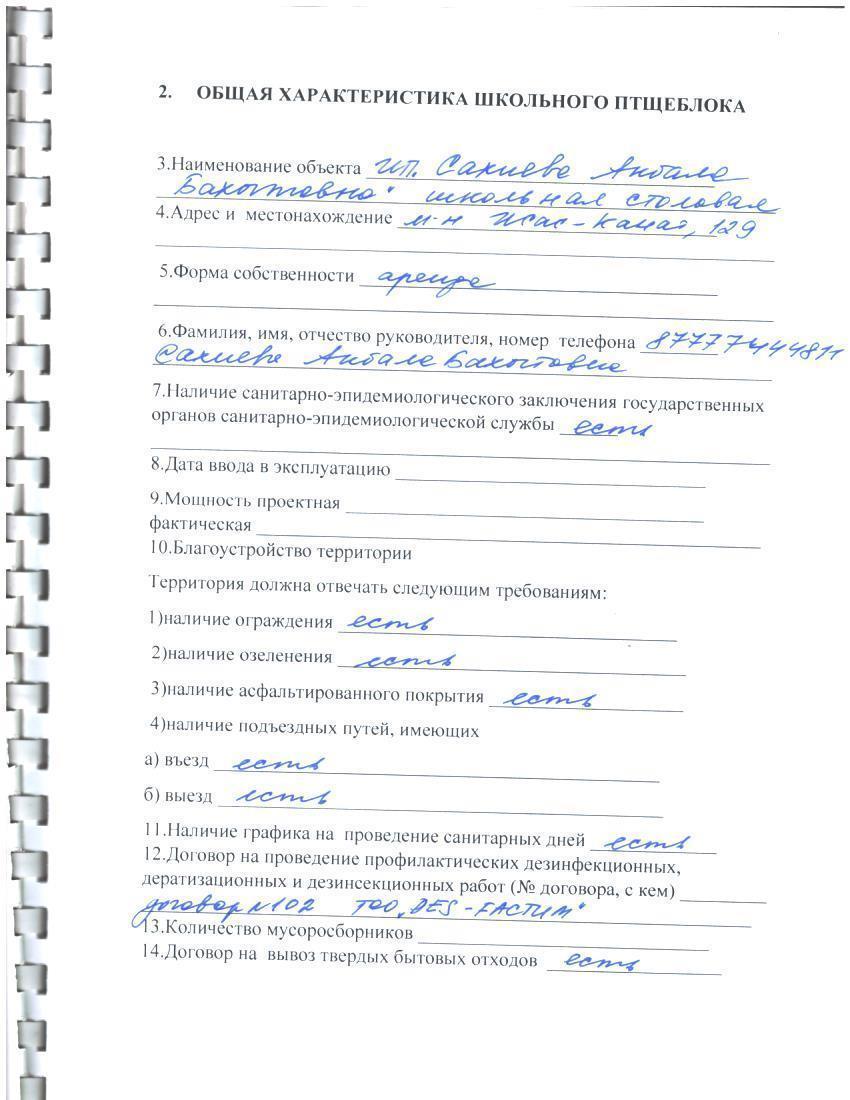 2. ОБЩАЯ ХАРАКТЕРИСТИКА ШКОЛЬНОГО ПТЩЕБЛОКА
3.Наименование объекта ИП. Сакиева Акбала
Бахытовна" школьная столовая
4.Адрес и местонахождение м-н Жас-Канат, 129
5.Форма собственности аренда
6.Фамилия, имя, отчество руководителя, номер телефона 87777444811
Сакиева Акбала Бахытовна
7.Наличие санитарно-эпидемиологического заключения государственных
органов санитарно-эпидемиологической службы есть
8.Дата ввода в эксплуатацию
9.Мощность проектная
фактическая
10.Благоустройство территории
Территория должна отвечать следующим требованиям:
1)наличие ограждения есть
2)наличие озеленения есть
3)наличие асфальтированного покрытия есть
4)наличие подъездных путей, имеющих
а) въезд есть
б) выезд есть
11.Наличие графика на проведение санитарных дней есть
12.Договор на проведение профилактических дезинфекционных,
дератизационных и дезинсекционных работ (№ договора, с кем)
договор №102 ТОО „DES-FACTUM"
13.Количество мусоросборников
14.Договор на вывоз твердых бытовых отходов есть